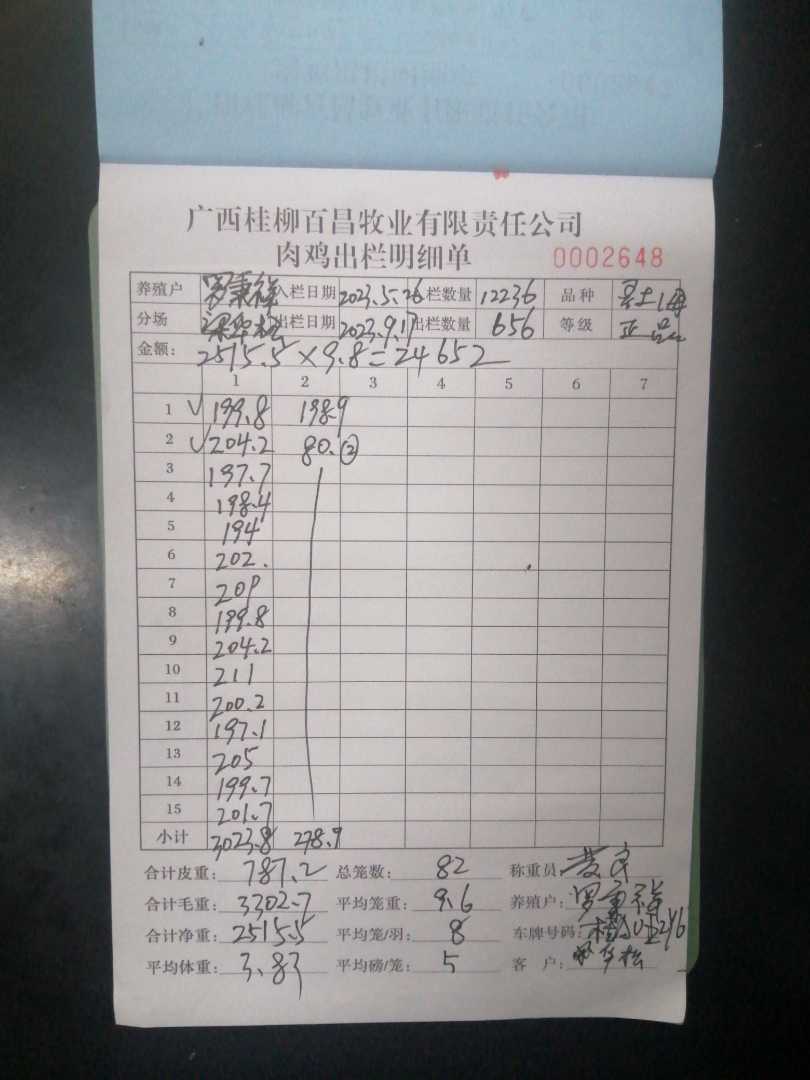 广西桂柳百昌牧业有限责任公司
肉鸡出栏明细单 0002648
养殖户 罗秉徐 入栏日期 2023.5.26 栏数量 12236 品种
分场 梁华松 出栏日期 2023.9.17 出栏数量 656 等级 正品
金额: 2515.5×9.8=24652
1 2 3 4 5 6 7
1 √ 199.8 198.9
2 √ 204.2 80.②
3 197.7
4 198.4
5 194
6 202.
7 209
8 199.8
9 204.2
10 211
11 200.2
12 197.1
13 205
14 199.7
15 201.7
小计 3023.8 278.9
合计皮重: 787.2 总笼数: 82 称重员:
合计毛重: 3302.7 平均笼重: 9.6 养殖户:
合计净重: 2515.5 平均笼/羽: 8 车牌号码:
平均体重: 3.83 平均磅/笼: 5 客 户: 梁华松